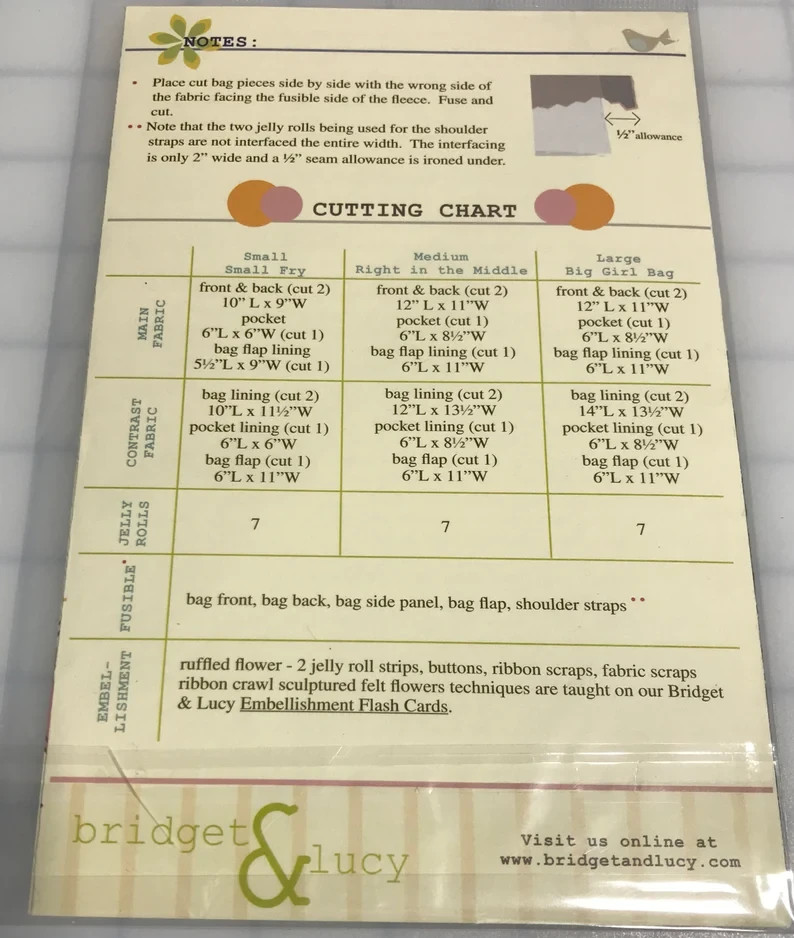 NOTES:
• Place cut bag pieces side by side with the wrong side of
the fabric facing the fusible side of the fleece. Fuse and
cut.
•• Note that the two jelly rolls being used for the shoulder
straps are not interfaced the entire width. The interfacing
is only 2” wide and a ½” seam allowance is ironed under.
½” allowance
CUTTING CHART
Small
Small Fry
Medium
Right in the Middle
Large
Big Girl Bag
MAIN
FABRIC
front & back (cut 2)
10” L x 9”W
pocket
6”L x 6”W (cut 1)
bag flap lining
5½”L x 9”W (cut 1)
front & back (cut 2)
12” L x 11”W
pocket (cut 1)
6”L x 8½”W
bag flap lining (cut 1)
6”L x 11”W
front & back (cut 2)
12” L x 11”W
pocket (cut 1)
6”L x 8½”W
bag flap lining (cut 1)
6”L x 11”W
CONTRAST
FABRIC
bag lining (cut 2)
10”L x 11½”W
pocket lining (cut 1)
6”L x 6”W
bag flap (cut 1)
6”L x 11”W
bag lining (cut 2)
12”L x 13½”W
pocket lining (cut 1)
6”L x 8½”W
bag flap (cut 1)
6”L x 11”W
bag lining (cut 2)
14”L x 13½”W
pocket lining (cut 1)
6”L x 8½”W
bag flap (cut 1)
6”L x 11”W
JELLY
ROLLS
7
7
7
FUSIBLE•
bag front, bag back, bag side panel, bag flap, shoulder straps••
EMBEL-
LISHMENT
ruffled flower - 2 jelly roll strips, buttons, ribbon scraps, fabric scraps
ribbon crawl sculptured felt flowers techniques are taught on our Bridget
& Lucy Embellishment Flash Cards.
bridget & lucy
Visit us online at
www.bridgetandlucy.com